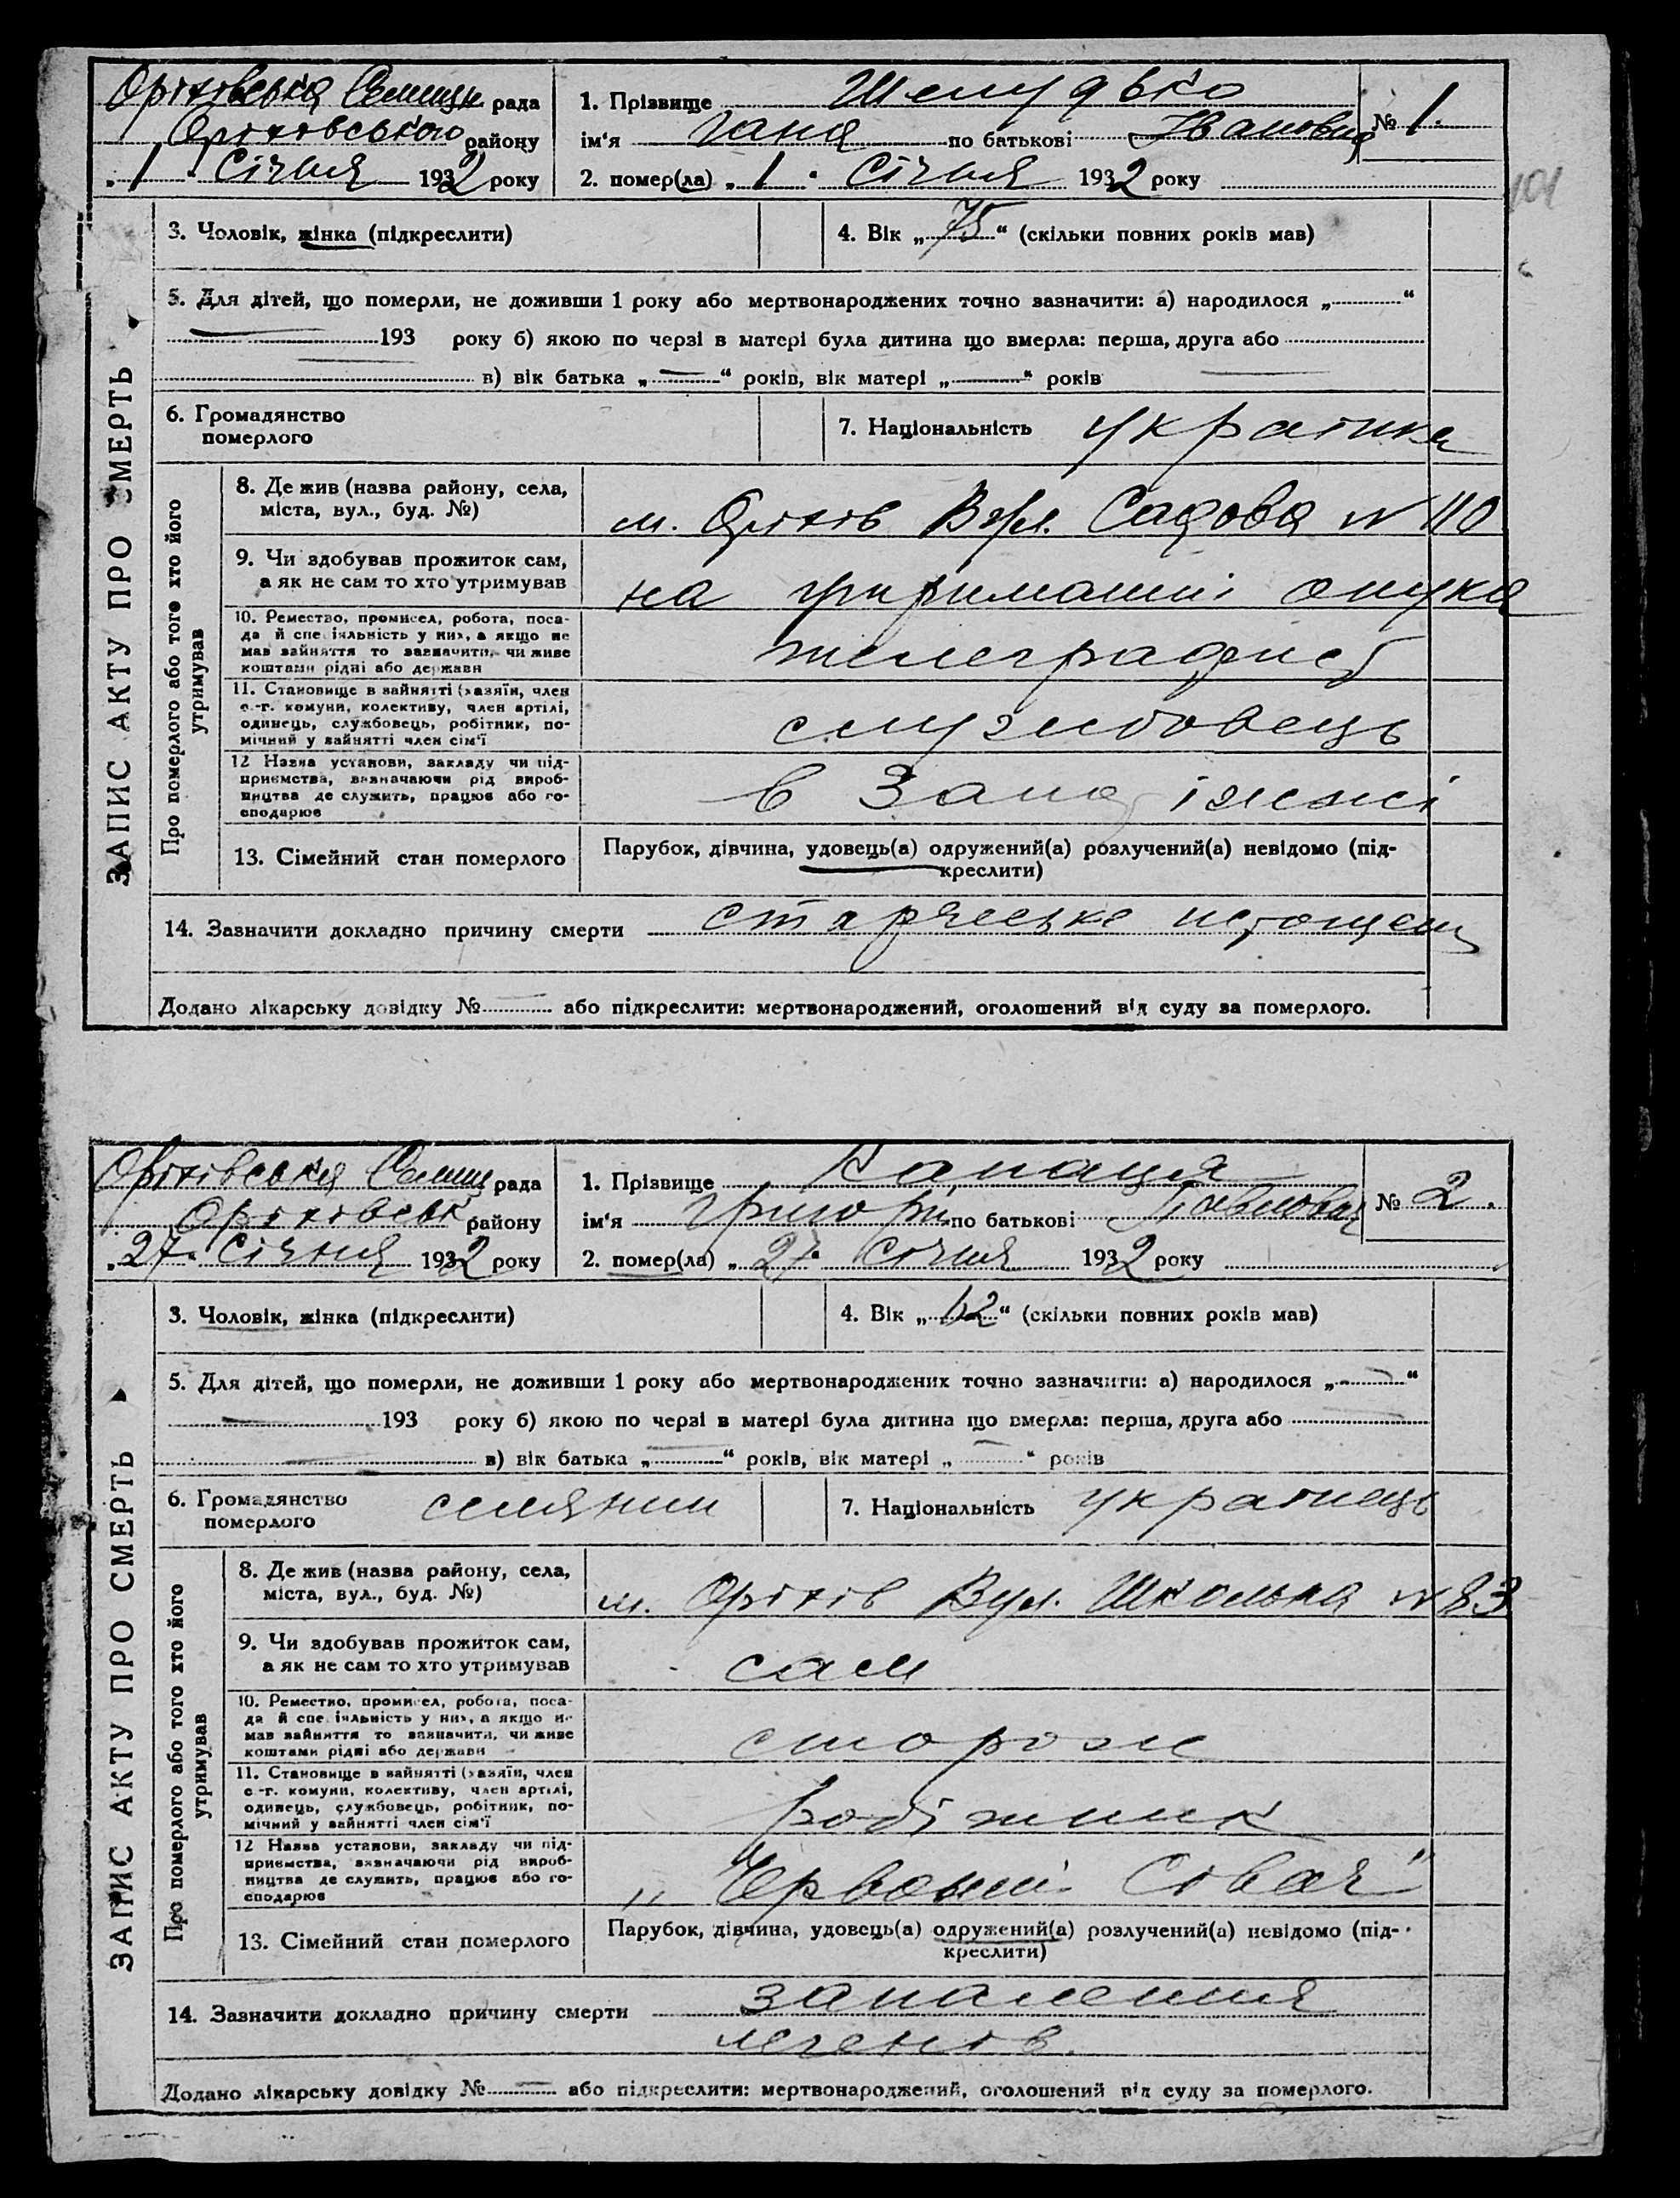 Оріхівська Селищн рада
Оріховського району
„ 1 " Січня 1932 року
1. Прізвище Шелудько № 1.
ім'я Гана по батькові Івановна
2. помер(ла) „ 1 " Січня 1932 року
101
ЗАПИС АКТУ ПРО СМЕРТЬ
3. Чоловік, жінка (підкреслити)
4. Вік „ 75 “ (скільки повних років мав)
5. Для дітей, що померли, не доживши 1 року або мертвонароджених точно зазначити: а) народилося „ — “
— 193 року б) якою по черзі в матері була дитина що вмерла: перша, друга або
в) вік батька „ — “ років, вік матері „ — “ років
6. Громадянство
померлого
7. Національність українка
Про померлого або того хто його
утримував
8. Де жив (назва району, села,
міста, вул., буд. №)
м. Оріхів Вул. Садова N 110
9. Чи здобував прожиток сам,
а як не сам то хто утримував
на утриманні онука
10. Ремество, промисел, робота, поса-
да й спеціяльність у них, а якщо не
мав зайняття то зазначити, чи живе
коштами рідні або держави
телеграфист
11. Становище в зайнятті (хазяїн, член
с.-г. комуни, колективу, член артілі,
одинець, службовець, робітник, по-
мічний у зайнятті член сім'ї
службовець
12 Назва установи, закладу чи під-
приємства, зазначаючи рід вироб-
ництва де служить, працює або го-
сподарює
в Запоріжжі
13. Сімейний стан померлого
Парубок, дівчина, удовець(а) одружений(а) розлучений(а) невідомо (під-
креслити)
14. Зазначити докладно причину смерти старческе
Додано лікарську довідку № — або підкреслити: мертвонароджений, оголошений від суду за померлого.
Оріхівська Селищ рада
Оріхівськ району
„ 27 " Січня 1932 року
1. Прізвище Капация № 2.
ім'я Григорій по батькові Павлович
2. помер(ла) „ 27 " Січня 1932 року
ЗАПИС АКТУ ПРО СМЕРТЬ
3. Чоловік, жінка (підкреслити)
4. Вік „ 62 “ (скільки повних років мав)
5. Для дітей, що померли, не доживши 1 року або мертвонароджених точно зазначити: а) народилося „ — “
— 193 року б) якою по черзі в матері була дитина що вмерла: перша, друга або
в) вік батька „ — “ років, вік матері „ — “ років
6. Громадянство
померлого
селянин
7. Національність українець
Про померлого або того хто його
утримував
8. Де жив (назва району, села,
міста, вул., буд. №)
м. Оріхів Вул. Школьна N 83
9. Чи здобував прожиток сам,
а як не сам то хто утримував
сам
10. Ремество, промисел, робота, поса-
да й спеціяльність у них, а якщо не
мав зайняття то зазначити, чи живе
коштами рідні або держави
сторож
11. Становище в зайнятті (хазяїн, член
с.-г. комуни, колективу, член артілі,
одинець, службовець, робітник, по-
мічний у зайнятті член сім'ї
робітник
12 Назва установи, закладу чи під-
приємства, зазначаючи рід вироб-
ництва де служить, працює або го-
сподарює
„ Червоний Сівач "
13. Сімейний стан померлого
Парубок, дівчина, удовець(а) одружений(а) розлучений(а) невідомо (під-
креслити)
14. Зазначити докладно причину смерти запалення
легенів.
Додано лікарську довідку № — або підкреслити: мертвонароджений, оголошений від суду за померлого.